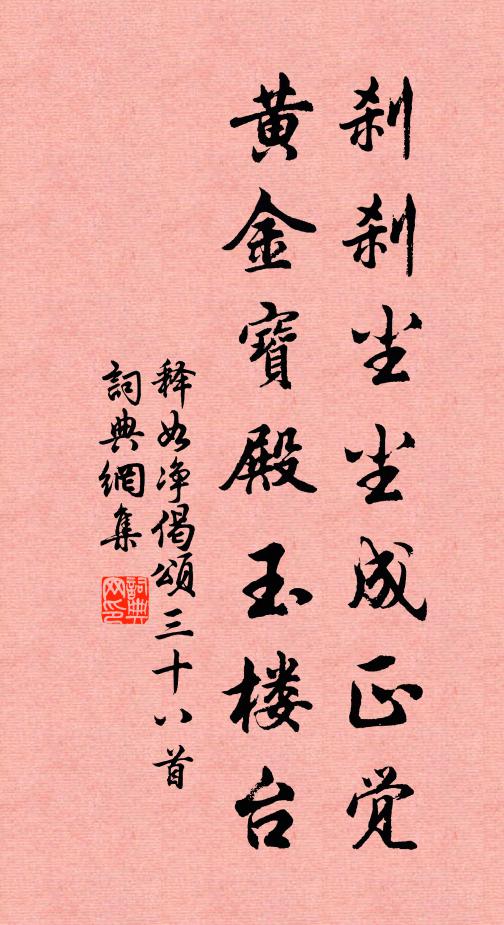 刹刹尘尘成正觉
黄金寶殿玉楼台
释如净偈頌三十八首
詞典網集
詞典网印